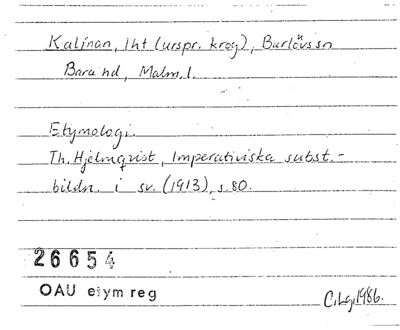 Kalinan, lht (urspr. krog), Burlövs sn
Bara hd, Malm. l.
Etymologi.
Th. Hjelmqvist, Imperativiska subst.-
bildn. i sv. (1913), s. 80.
26654
OAU etym reg
C.Lg. 1986.